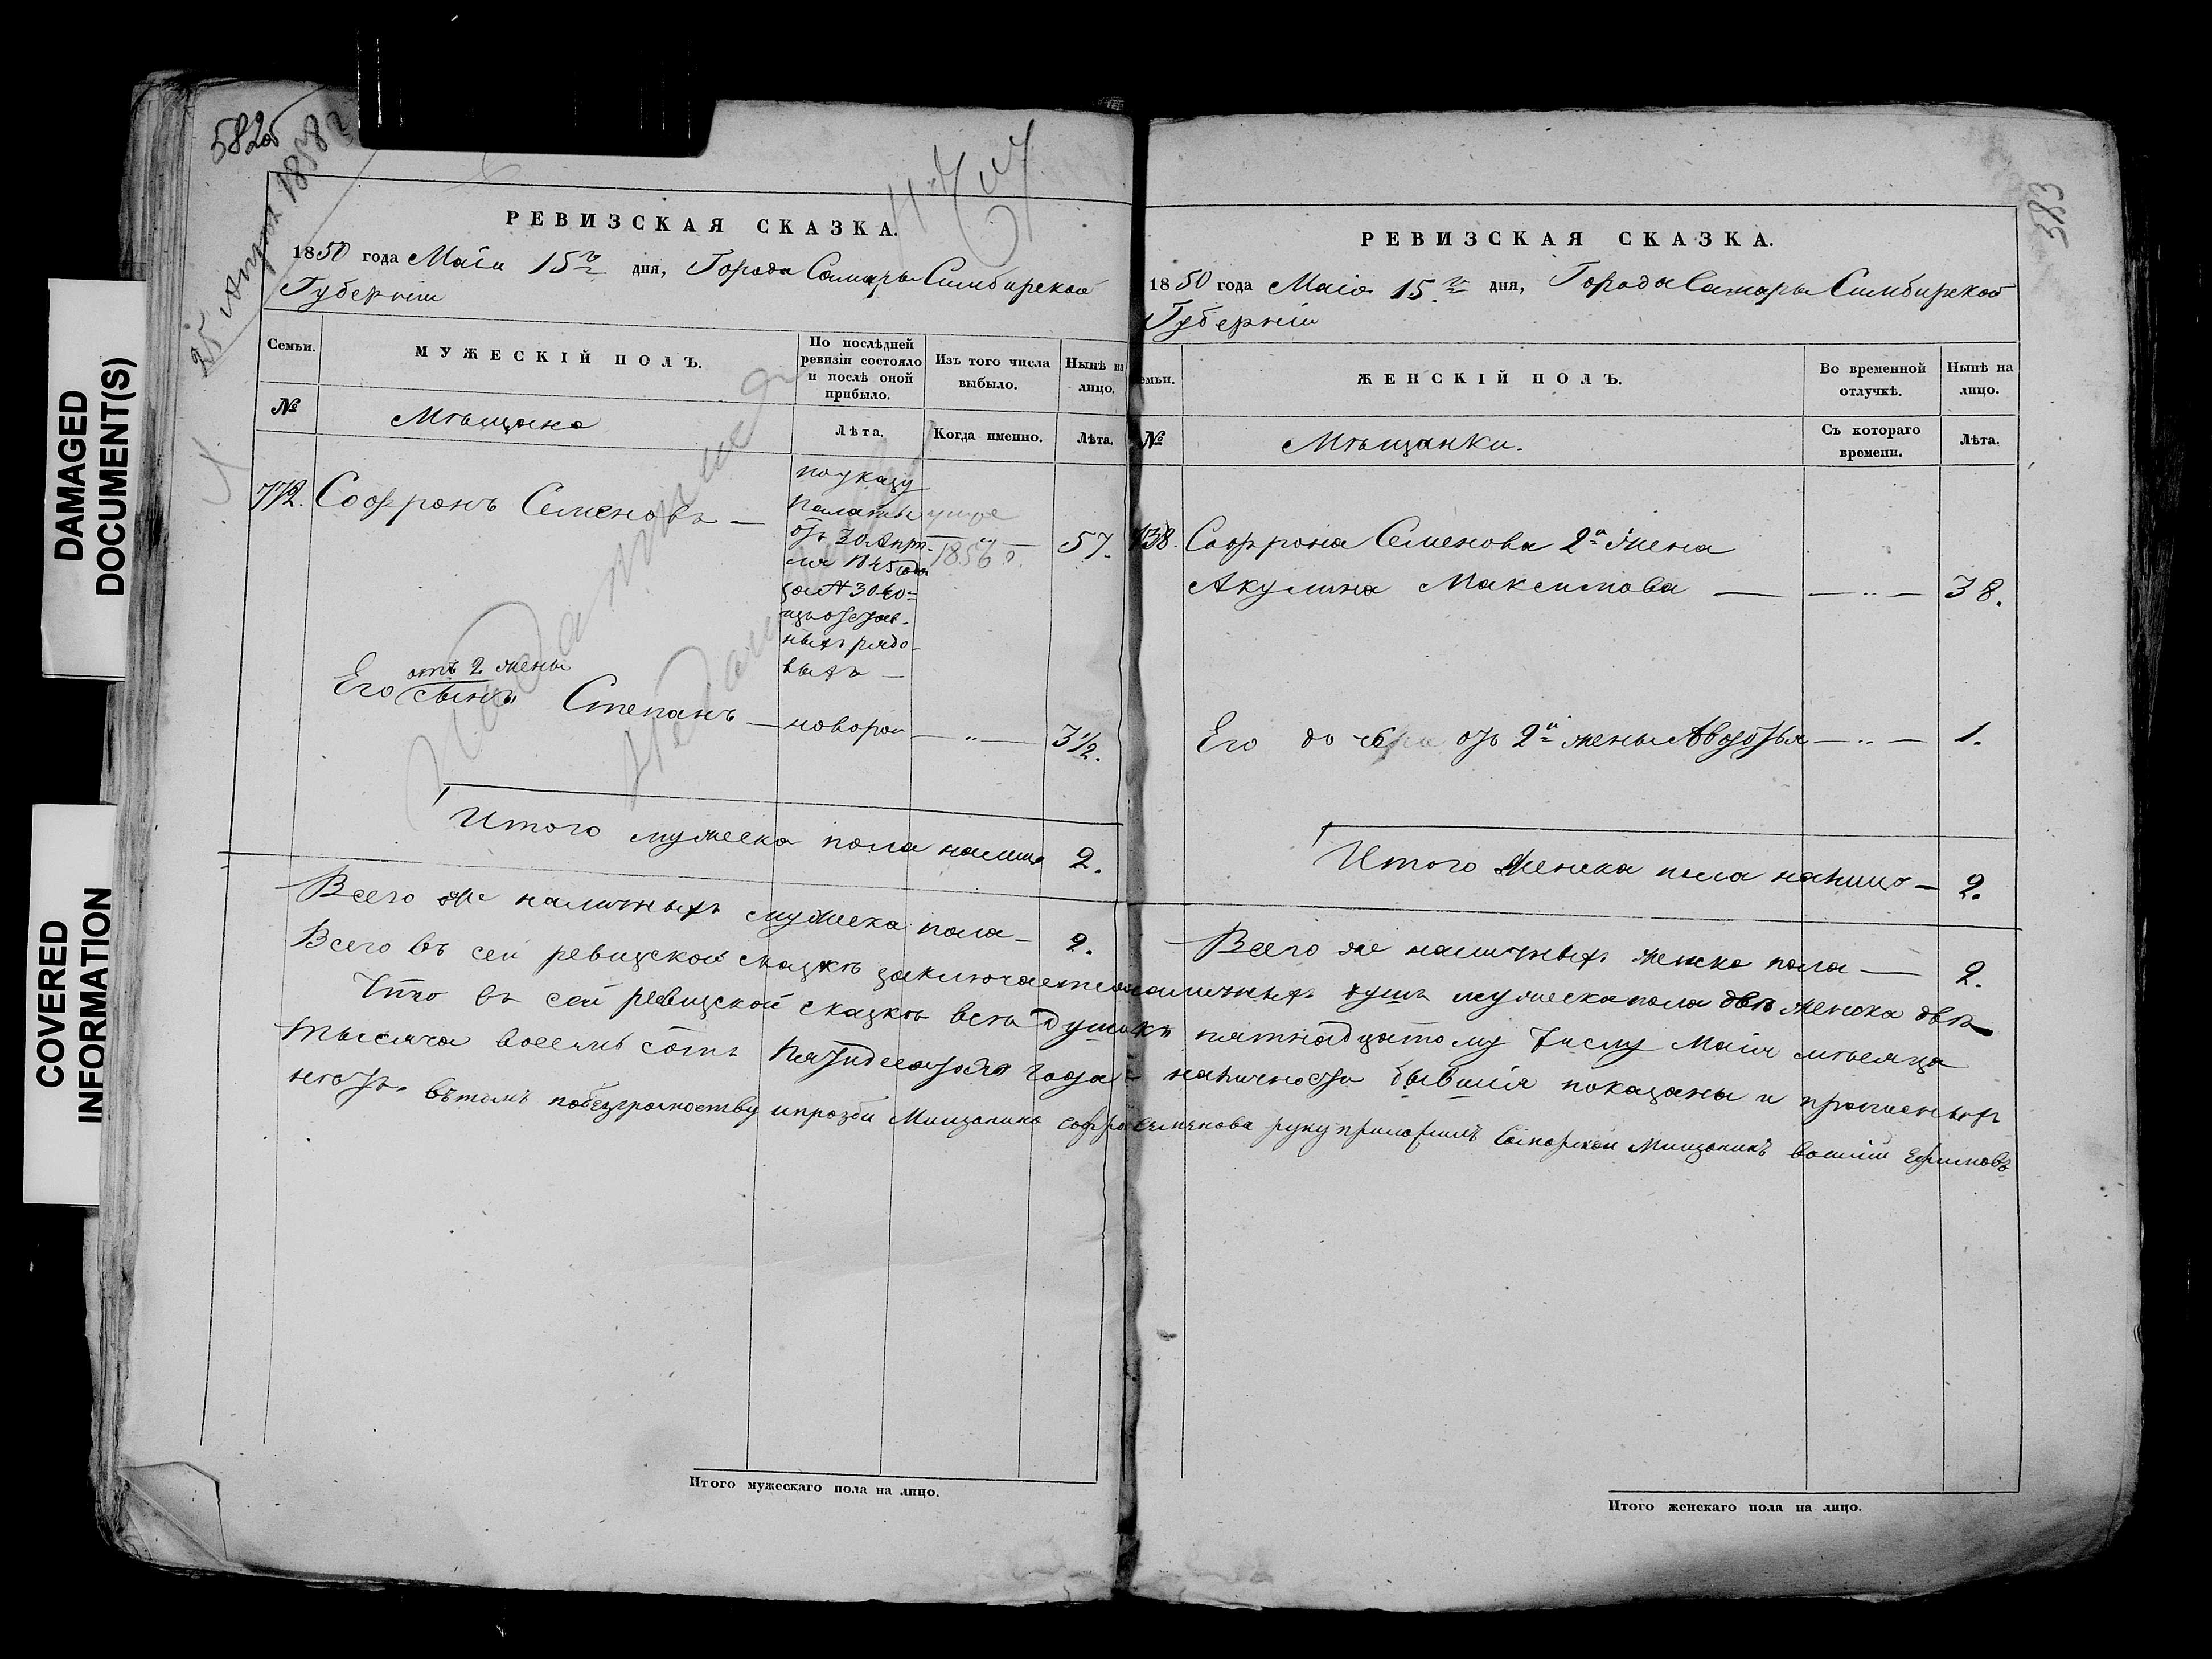 DAMAGED
DOCUMENT(S)
COVERED
INFORMATION
582об
РЕВИЗСКАЯ СКАЗКА.
1850 года Маія 15го дня, Города Самары Симбирской
Губерніи
Семьи. МУЖЕСКІЙ ПОЛЪ. По послѣдней ревизіи состояло и послѣ оной прибыло. Изъ того числа выбыло. Нынѣ на лицо.
№ Мѣщане Лѣта. Когда именно. Лѣта.
772. Софронъ Семеновъ — 57.
по указу
Палаты
отъ 30 Апрѣ-
ля 1845 года
за № 3040
изъ отстав-
ныхъ рядо-
выхъ —
1856
отъ 2 жены
Его сынъ Степанъ — новорож — „ — 3 1/2.
Итого мужеска пола налицо 2.
Всего же наличныхъ мужеска пола — 2.
583
РЕВИЗСКАЯ СКАЗКА.
1850 года Маія 15го дня, Города Самары Симбирской
Губерніи
емьи. ЖЕНСКІЙ ПОЛЪ. Во временной отлучкѣ. Нынѣ на лицо.
№ Мѣщанки. Съ котораго времени. Лѣта.
Софрона Семенова 2я жена
Акулина Максимова — — „ — 38.
Его дочь отъ 2й жены Авдотья — „ — 1.
Итого Женска пола налицо — 2.
Всего же наличныхъ женска пола — 2.
Всего въ сей ревизской сказкѣ заключается наличныхъ душъ мужеска пола двѣ женска двѣ
Что въ сей ревизской сказкѣ всѣ души къ пятнадцатому числу Маія мѣсяца
тысяча восемь сотъ Пятидесятаго года наличности бывшія показаны и прописныхъ
нѣтъ. въ томъ побезграмотству ипрозби Мищанина Софро Семенова руку приложилъ Самарской Мищанинъ Василій Ефимовъ
Итого мужескаго пола на лицо.
Итого женскаго пола на лицо.